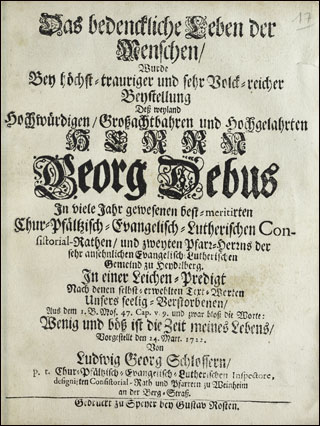 17
Das bedenckliche Leben der
Menschen/
Wurde
Bey höchst-trauriger und sehr Volck-reicher
Beystellung
Deß weyland
Hochwürdigen/ Großachtbahren und Hochgelahrten
HERRN
Georg Debus
In viele Jahr gewesenen best-meritirten
Chur-Pfältzisch-Evangelisch-Lutherischen Con-
sistorial-Rathen/ und zweyten Pfarr-Herrns der
sehr ansehnlichen Evangelisch-Lutherischen
Gemeind zu Heydelberg,
In einer Leichen-Predigt
Nach denen selbst-erwehlten Text-Worten
Unsers seelig-Verstorbenen/
Aus dem 1. B. Mos. 47. Cap. v 9. und zwar bloß die Worte:
Wenig und böß ist die Zeit meines Lebens/
Vorgestellt den 24. Mart. 1722.
Von
Ludwig Georg Schlossern/
p. t. Chur-Pfältzisch-Evangelisch-Lutherischen Inspectore,
designirten Consistorial-Rath und Pfarrern zu Weinheim
an der Berg-Straß.
Gedruckt zu Speyer bey Gustav Kosten.